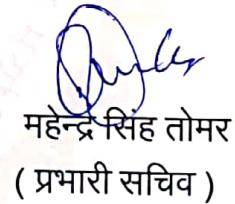 महेन्द्र सिंह तोमर
( प्रभारी सचिव )